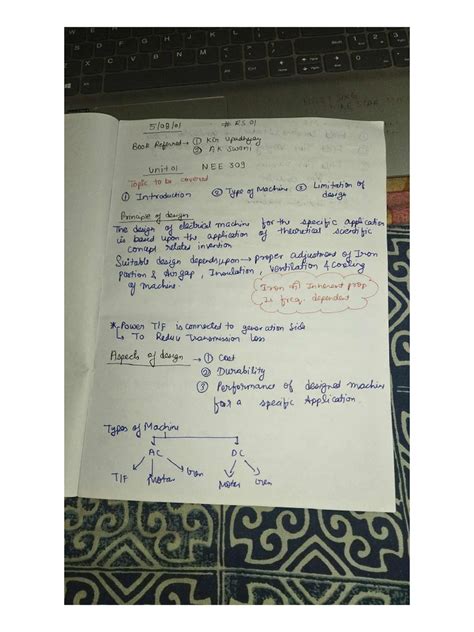 5/09/01 # RS 01
Book Referred → ① KG Upadhyay
② AK Swani
Unit 01 NEE 309
Topic to be covered
① Introduction ② Type of Machine ③ Limitation of design
Principle of design
The design of electrical machine for the specific application
is based upon the application of theoretical scientific
concept relates invention
Suitable design depends upon → proper adjustment of Iron
portion & Air gap, Insulation, Ventilation & Cooling
of machine.
Iron की Inherent prop
is freq. dependent
* Power T/F is connected to generation side
↳ To Reduce Transmission Loss
Aspects of design → ① Cost
② Durability
③ Performance of designed machine
for a specific Application.
Types of Machine
AC DC
T/F Motor Gen Motor Gen